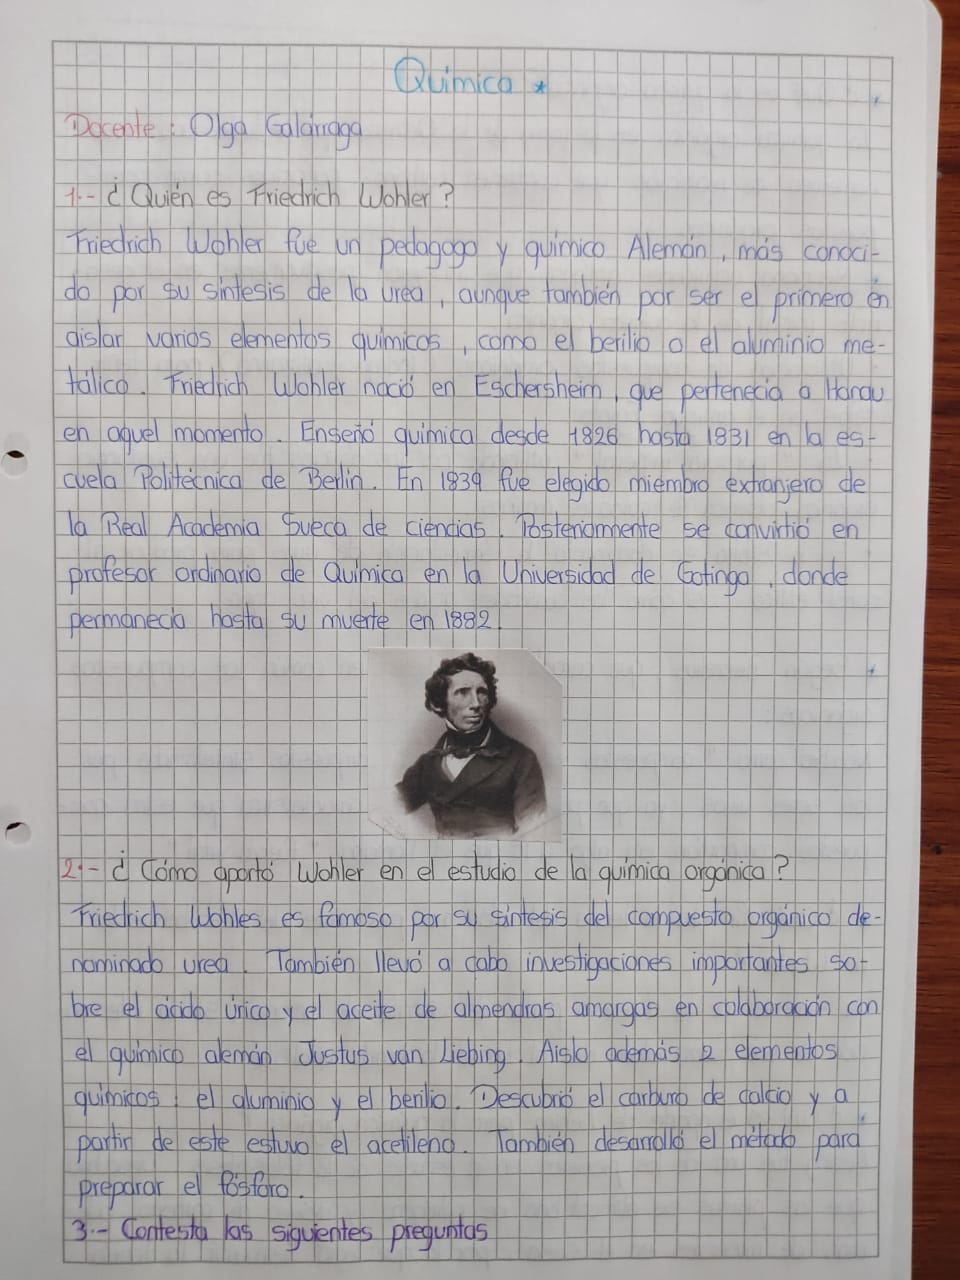 Química *
Docente: Olga Galárraga
1.- ¿Quién es Friedrich Wohler?
Friedrich Wohler fue un pedagogo y químico Alemán, más conoci-
do por su síntesis de la urea, aunque también por ser el primero en
aislar varios elementos químicos, como el berilio o el aluminio me-
tálico. Friedrich Wohler nació en Eschersheim, que pertenecia a Hanau
en aquel momento. Enseñó química desde 1826 hasta 1831 en la es-
cuela Politécnica de Berlín. En 1839 fue elegido miembro extranjero de
la Real Academia Sueca de ciencias. Posteriormente se convirtió en
profesor ordinario de Química en la Universidad de Gotinga, donde
permanecio hasta su muerte en 1882.
2.- ¿Cómo aportó Wohler en el estudio de la química orgánica?
Friedrich Wohles es famoso por su síntesis del compuesto orgánico de-
nominado urea. También llevó a cabo investigaciones importantes so-
bre el ácido úrico y el aceite de almendras amargas en colaboración con
el químico alemán Justus van Liebing. Aislo además 2 elementos
químicos: el aluminio y el berilio. Descubrió el carburo de calcio y a
partir de este estuvo el acetileno. También desarrolló el método para
preparar el fósforo.
3.- Contesta las siguientes preguntas